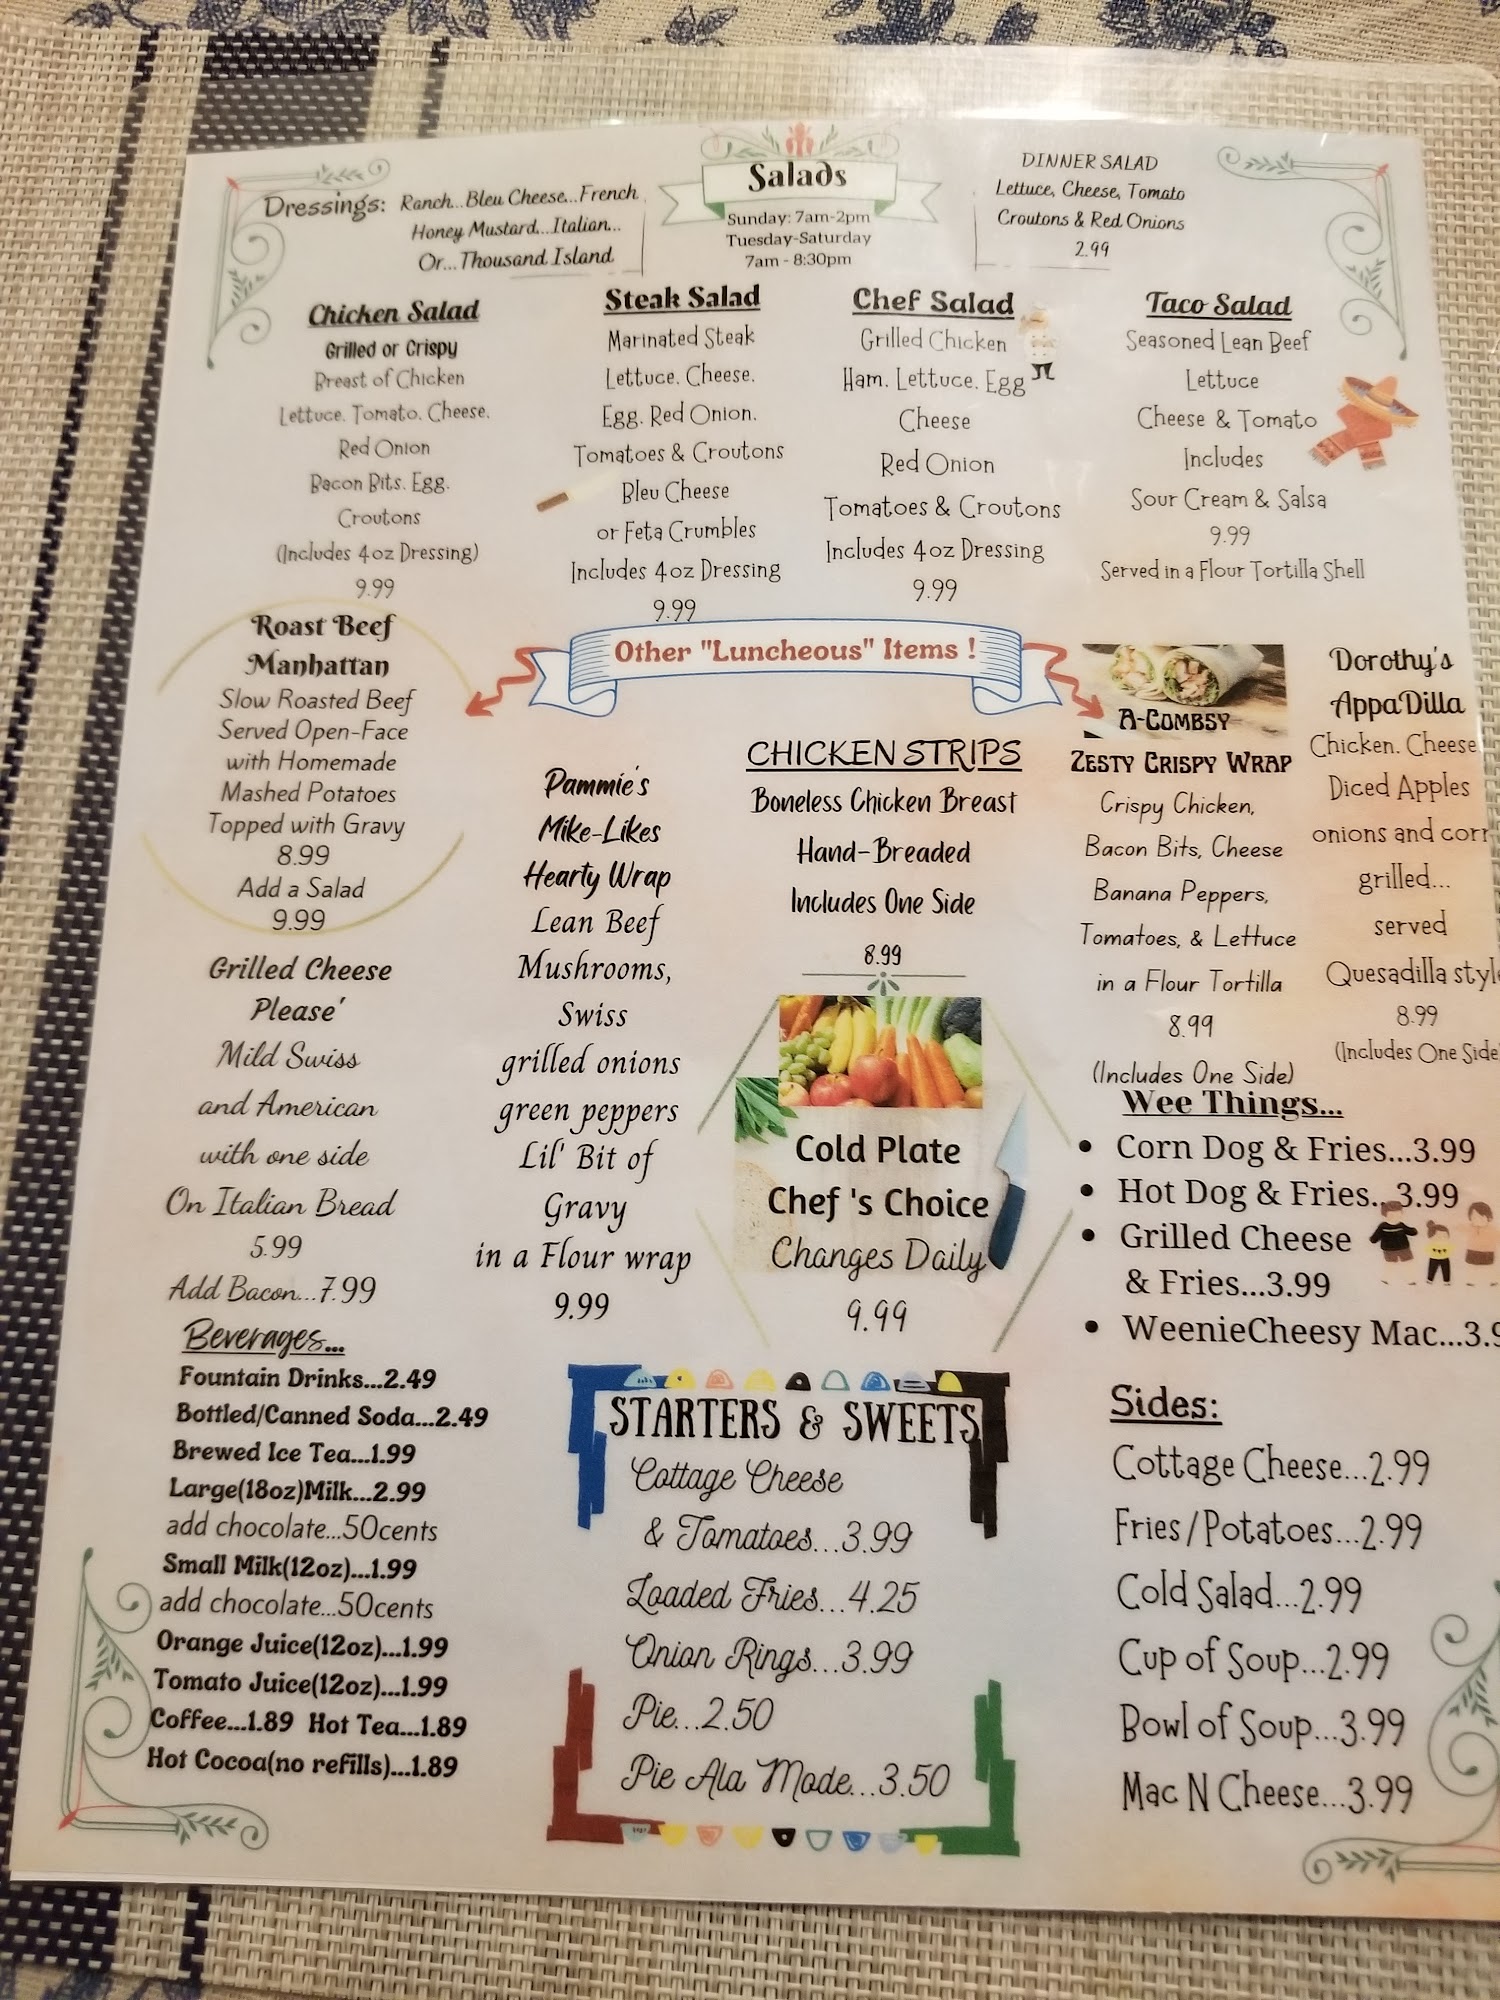 Salads
Sunday: 7am-2pm
Tuesday-Saturday
7am - 8:30pm
Dressings: Ranch...Bleu Cheese...French
Honey Mustard...Italian...
Or...Thousand Island
DINNER SALAD
Lettuce, Cheese, Tomato
Croutons & Red Onions
2.99
Chicken Salad
Grilled or Crispy
Breast of Chicken
Lettuce. Tomato. Cheese.
Red Onion
Bacon Bits. Egg.
Croutons
(Includes 4oz Dressing)
9.99
Steak Salad
Marinated Steak
Lettuce. Cheese.
Egg. Red Onion.
Tomatoes & Croutons
Bleu Cheese
or Feta Crumbles
Includes 4oz Dressing
9.99
Chef Salad
Grilled Chicken
Ham. Lettuce. Egg
Cheese
Red Onion
Tomatoes & Croutons
Includes 4oz Dressing
9.99
Taco Salad
Seasoned Lean Beef
Lettuce
Cheese & Tomato
Includes
Sour Cream & Salsa
9.99
Served in a Flour Tortilla Shell
Other "Luncheous" Items !
Roast Beef
Manhattan
Slow Roasted Beef
Served Open-Face
with Homemade
Mashed Potatoes
Topped with Gravy
8.99
Add a Salad
9.99
Grilled Cheese
Please'
Mild Swiss
and American
with one side
On Italian Bread
5.99
Add Bacon...7.99
Pammie's
Mike-Likes
Hearty Wrap
Lean Beef
Mushrooms,
Swiss
grilled onions
green peppers
Lil' Bit of
Gravy
in a Flour wrap
9.99
CHICKEN STRIPS
Boneless Chicken Breast
Hand-Breaded
Includes One Side
8.99
Cold Plate
Chef 's Choice
Changes Daily
9.99
A-Combsy
Zesty Crispy Wrap
Crispy Chicken,
Bacon Bits, Cheese
Banana Peppers,
Tomatoes, & Lettuce
in a Flour Tortilla
8.99
(Includes One Side)
Dorothy's
AppaDilla
Chicken. Cheese
Diced Apples
onions and corn
grilled...
served
Quesadilla style
8.99
(Includes One Side)
Wee Things...
• Corn Dog & Fries...3.99
• Hot Dog & Fries...3.99
• Grilled Cheese
& Fries...3.99
• WeenieCheesy Mac...3.9
Beverages...
Fountain Drinks...2.49
Bottled/Canned Soda...2.49
Brewed Ice Tea...1.99
Large(18oz)Milk...2.99
add chocolate...50cents
Small Milk(12oz)...1.99
add chocolate...50cents
Orange Juice(12oz)...1.99
Tomato Juice(12oz)...1.99
Coffee...1.89 Hot Tea...1.89
Hot Cocoa(no refills)...1.89
STARTERS & SWEETS
Cottage Cheese
& Tomatoes...3.99
Loaded Fries...4.25
Onion Rings...3.99
Pie...2.50
Pie Ala Mode...3.50
Sides:
Cottage Cheese...2.99
Fries/Potatoes...2.99
Cold Salad...2.99
Cup of Soup...2.99
Bowl of Soup...3.99
Mac N Cheese...3.99